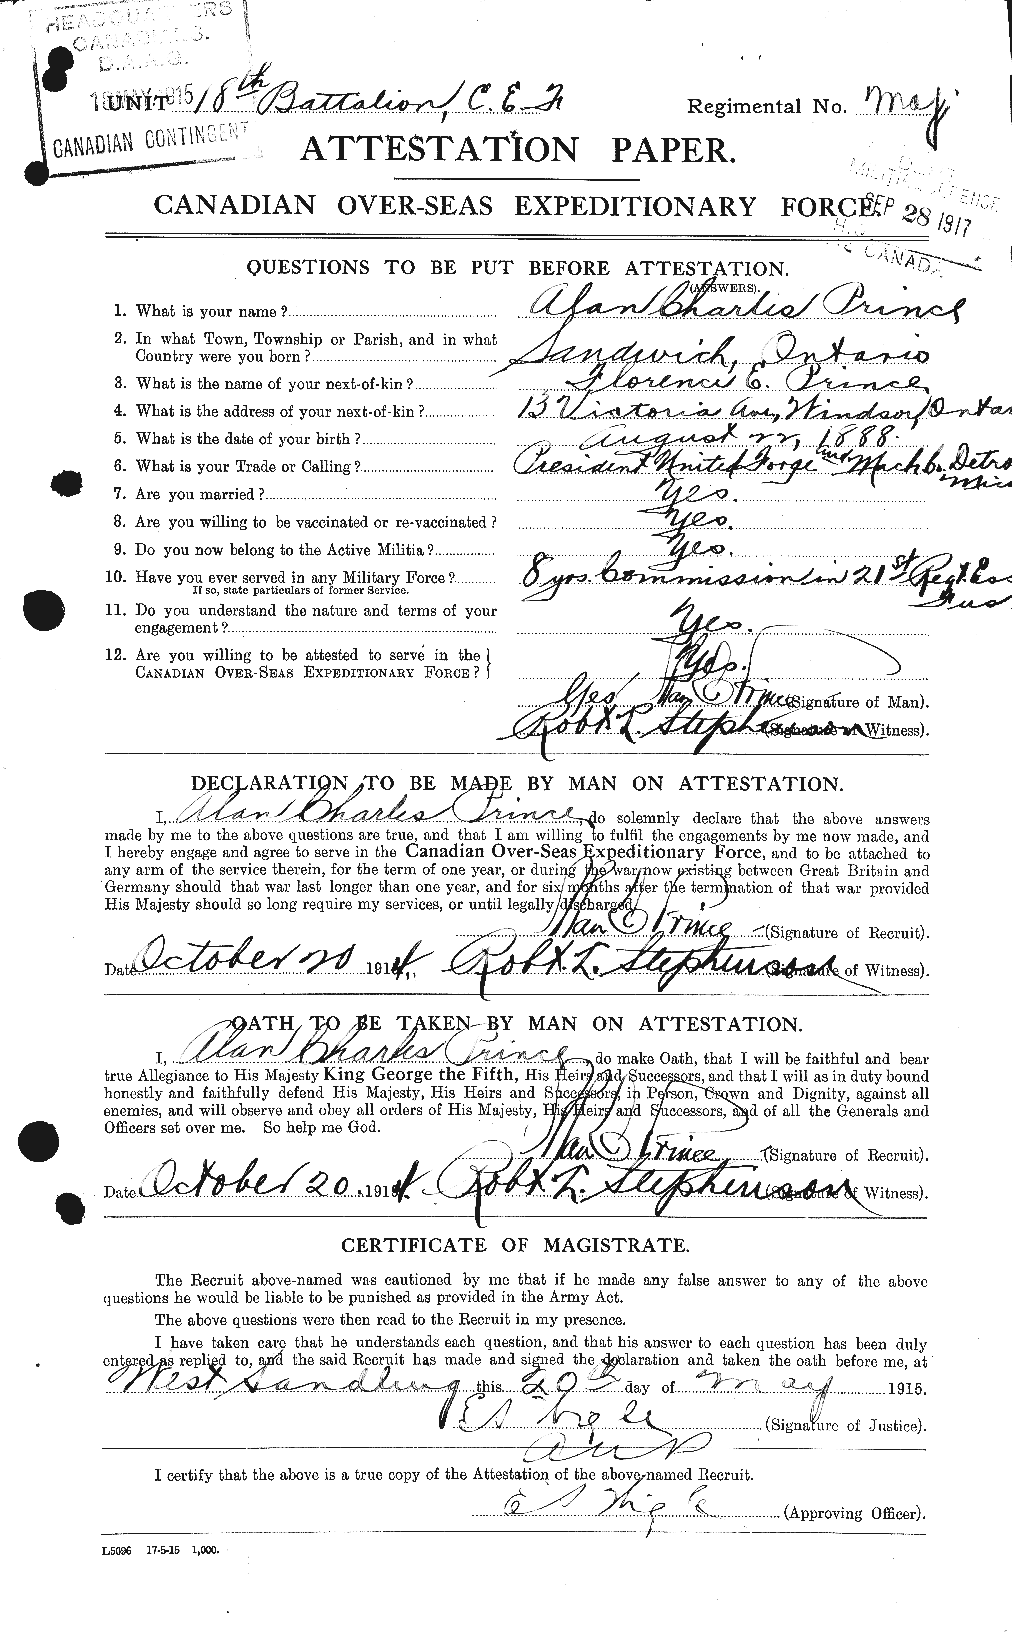 HEADQUARTERS
CANADIANS.
D.A.A.G.
MAY 1915
CANADIAN CONTINGENT
UNIT 18th Battalion, C.E.F
Regimental No. Maj
ATTESTATION PAPER.
CANADIAN OVER-SEAS EXPEDITIONARY FORCE.
SEP 28 1917
CANADA
QUESTIONS TO BE PUT BEFORE ATTESTATION.
(ANSWERS).
1. What is your name? Alan Charles Prince
2. In what Town, Township or Parish, and in what
Country were you born? Sandwich, Ontario
3. What is the name of your next-of-kin? Florence E. Prince
4. What is the address of your next-of-kin? 13 Victoria Ave, Windsor, Ontar
5. What is the date of your birth? August 22, 1888.
6. What is your Trade or Calling? President United Forge and Mach Co. Detro
Mic
7. Are you married? Yes.
8. Are you willing to be vaccinated or re-vaccinated? Yes.
9. Do you now belong to the Active Militia? Yes.
10. Have you ever served in any Military Force? 8 yrs. Commission in 21st Regt. Ess
If so, state particulars of former Service. Fus
11. Do you understand the nature and terms of your
engagement? Yes.
12. Are you willing to be attested to serve in the
CANADIAN OVER-SEAS EXPEDITIONARY FORCE? Yes.
Yes Alan C Prince (Signature of Man).
Robt. L. Stephenson (Signature of Witness).
DECLARATION TO BE MADE BY MAN ON ATTESTATION.
I, Alan Charles Prince, do solemnly declare that the above answers
made by me to the above questions are true, and that I am willing to fulfil the engagements by me now made, and
I hereby engage and agree to serve in the Canadian Over-Seas Expeditionary Force, and to be attached to
any arm of the service therein, for the term of one year, or during the war now existing between Great Britain and
Germany should that war last longer than one year, and for six months after the termination of that war provided
His Majesty should so long require my services, or until legally discharged.
Alan C Prince (Signature of Recruit).
Date October 20 1914. Robt. L. Stephenson (Signature of Witness).
OATH TO BE TAKEN BY MAN ON ATTESTATION.
I, Alan Charles Prince, do make Oath, that I will be faithful and bear
true Allegiance to His Majesty King George the Fifth, His Heirs and Successors, and that I will as in duty bound
honestly and faithfully defend His Majesty, His Heirs and Successors, in Person, Crown and Dignity, against all
enemies, and will observe and obey all orders of His Majesty, His Heirs and Successors, and of all the Generals and
Officers set over me. So help me God.
Alan C Prince (Signature of Recruit).
Date October 20 1914. Robt. L. Stephenson (Signature of Witness).
CERTIFICATE OF MAGISTRATE.
The Recruit above-named was cautioned by me that if he made any false answer to any of the above
questions he would be liable to be punished as provided in the Army Act.
The above questions were then read to the Recruit in my presence.
I have taken care that he understands each question, and that his answer to each question has been duly
entered as replied to, and the said Recruit has made and signed the declaration and taken the oath before me, at
West Sandling this 29th day of May 1915.
E S Wigle (Signature of Justice).
I certify that the above is a true copy of the Attestation of the above-named Recruit.
E S Wigle (Approving Officer).
L5096 17-5-15 1,000.